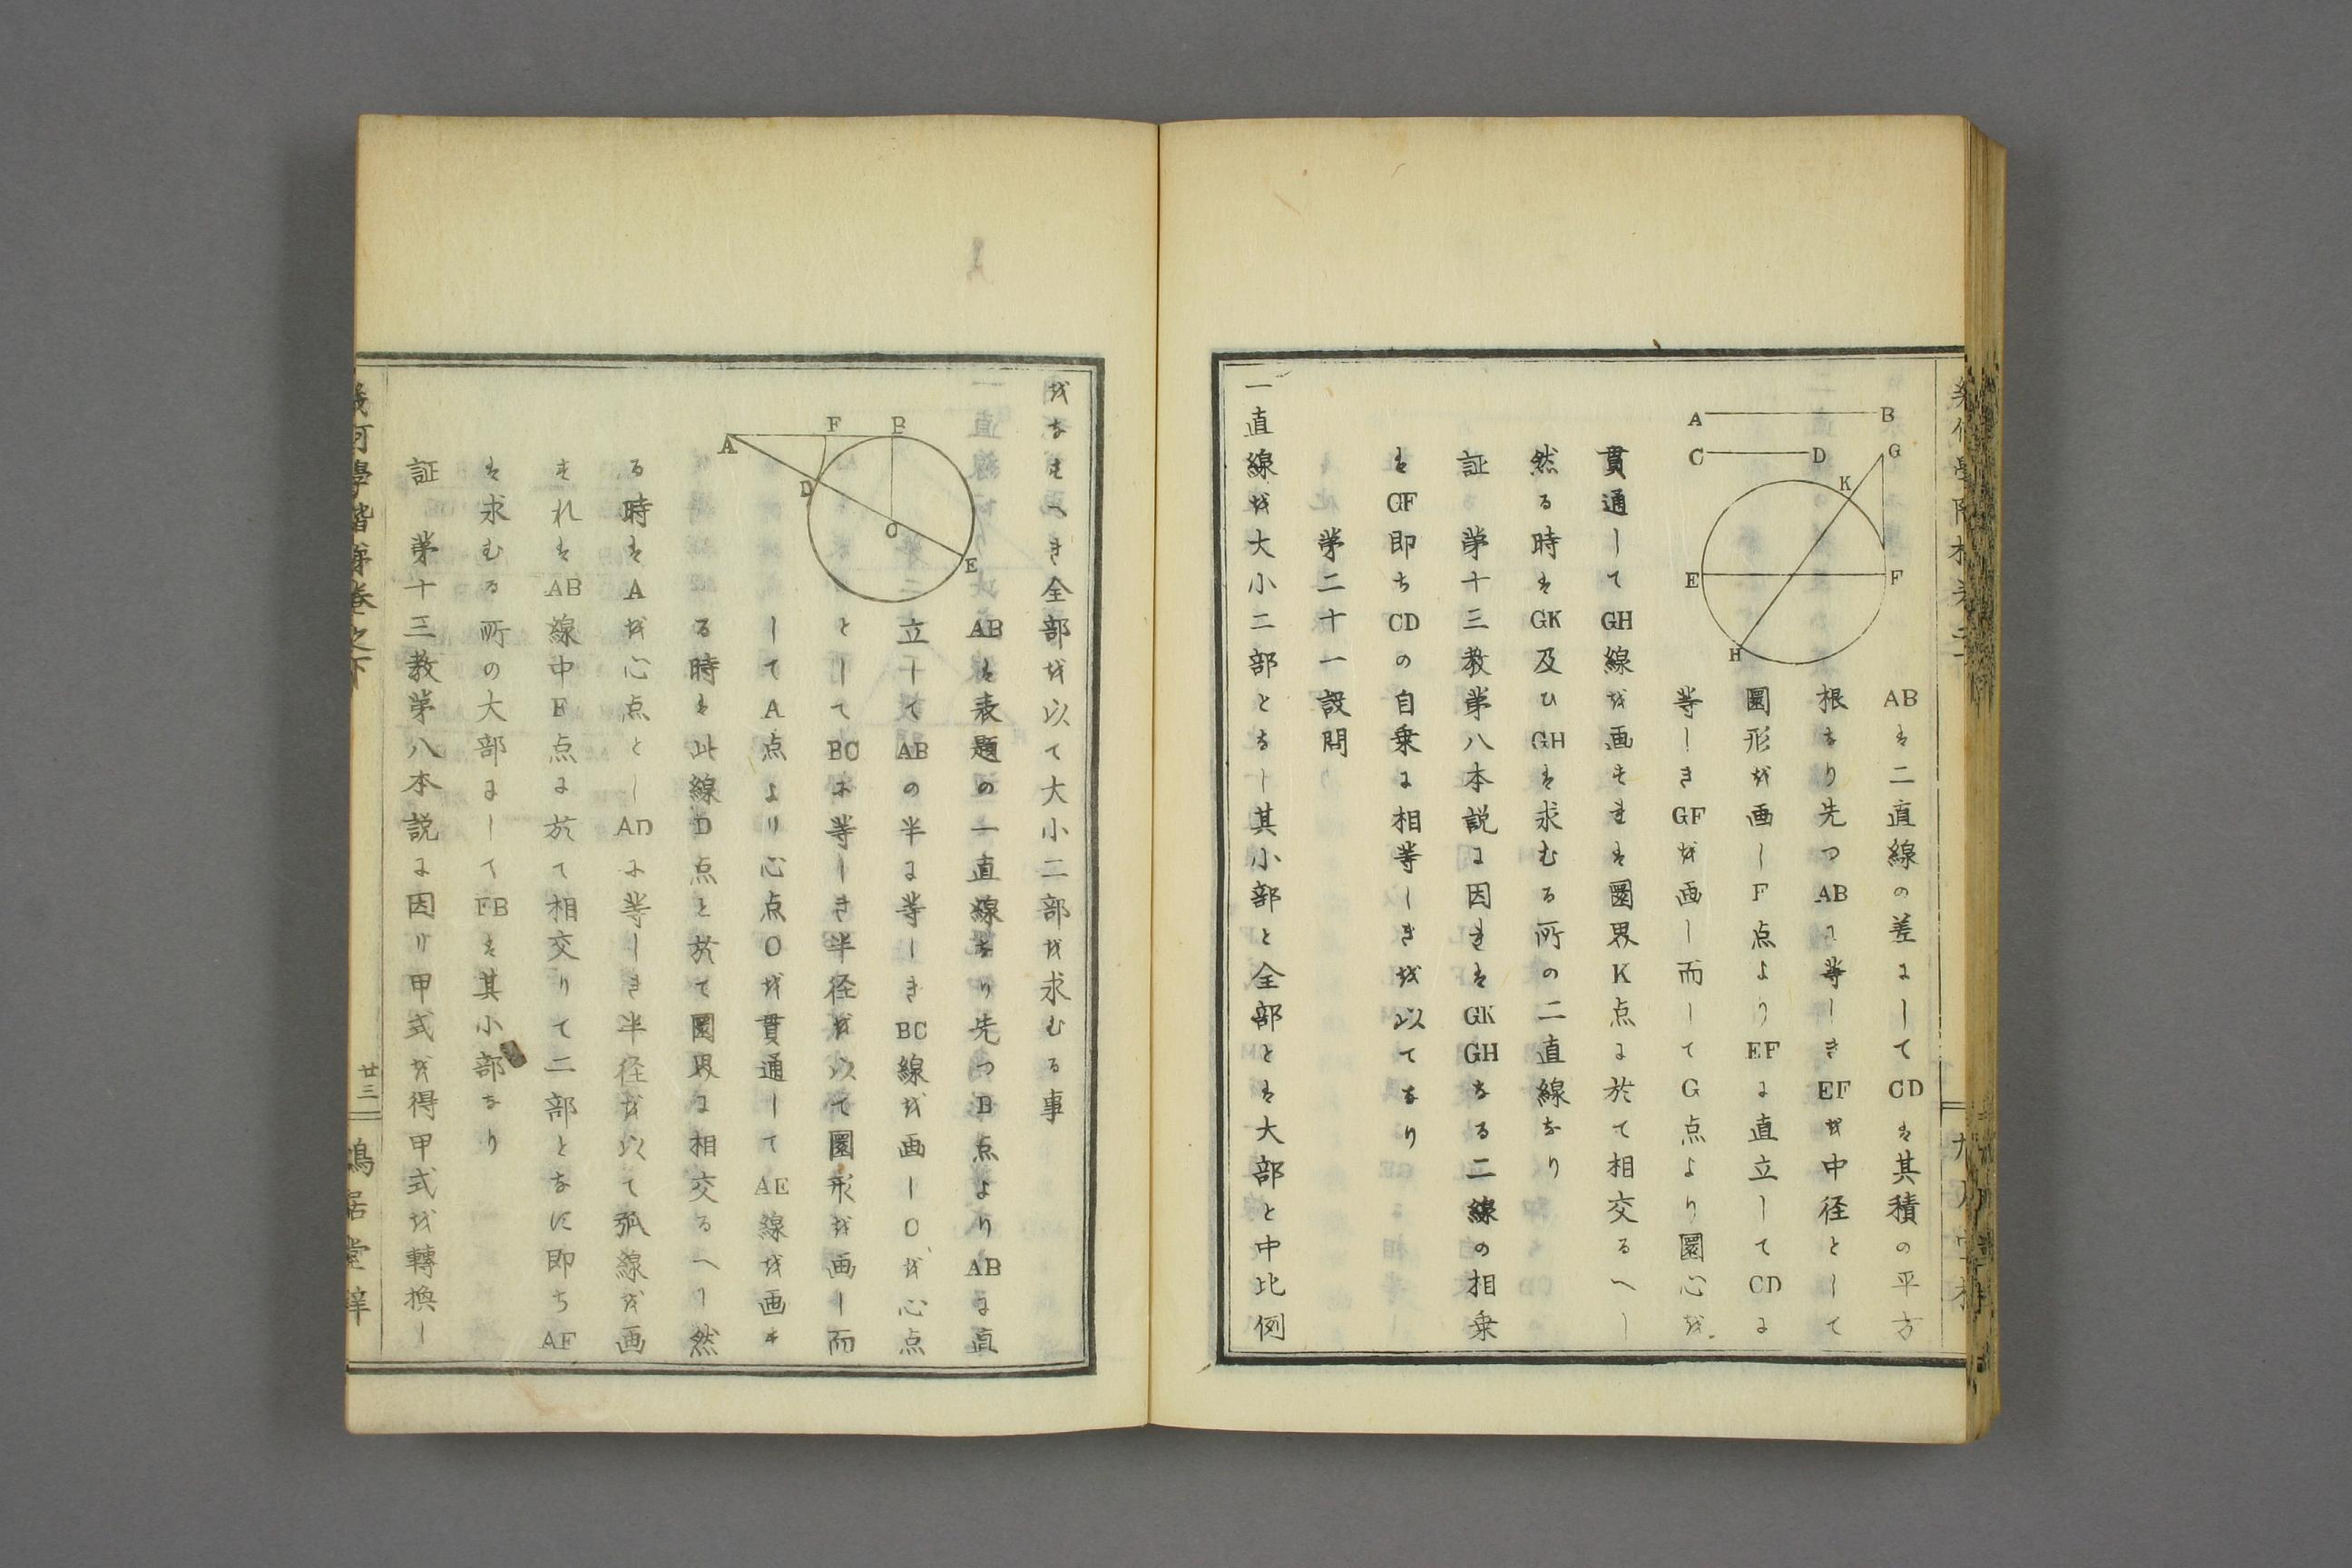 A B
C D G
K
E F
H
ABは二直線の差にしてCDは其積の平方
根なり先つABに等しきEFを中径として
圏形を画しF点よりEFに直立してCDに
等しきGFを画し而してG点より圏心を
貫通してGH線を画すれは圏界K点に於て相交るへし
然る時はGK及ひGHは求むる所の二直線なり
証 第十三教第八本説に因れはGKGHなる二線の相乗
はGF即ちCDの自乗に相等しきを以てなり
第二十一設問
一直線を大小二部となし其小部と全部とは大部と中比例
をなすへき全部を以て大小二部を求むる事
A F B
D O
E
ABは表題の一直線なり先つB点よりABに直
立してABの半に等しきBC線を画しOを心点
としてBCに等しき半径を以て圏形を画し而
してA点より心点Oを貫通してAE線を画す
る時は此線D点に於て圏界に相交るへし然
る時はAを心点としADに等しき半径を以て弧線を画
すれはAB線中F点に於て相交りて二部となに即ちAF
は求むる所の大部にしてFBは其小部なり
証 第十三教第八本説に因り甲式を得甲式を轉換し
幾何學階梯巻之下
廿三